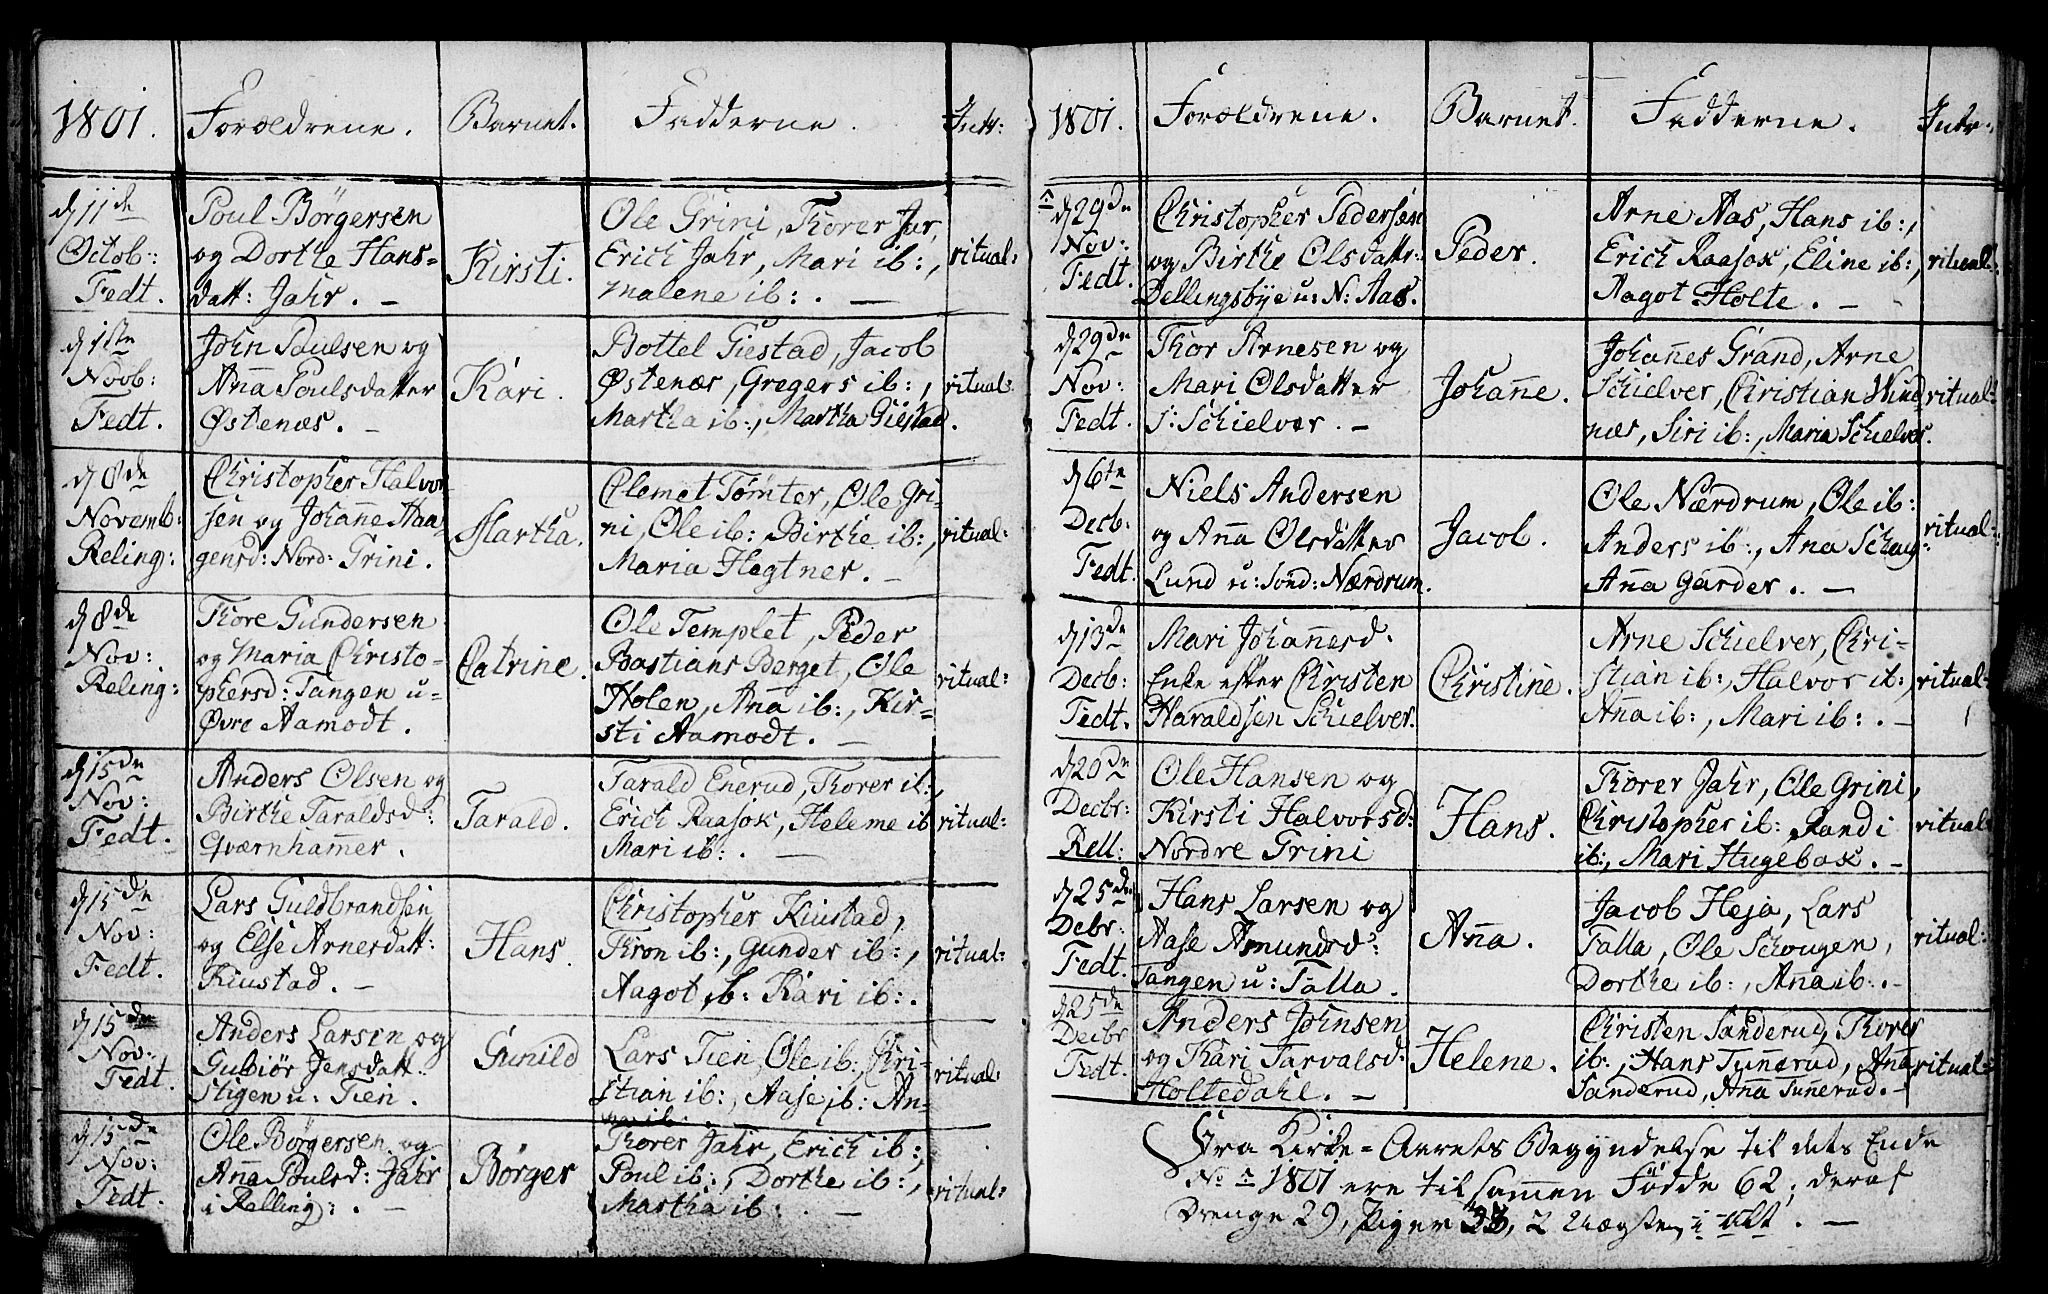 1801. Forældrene. Barnet. Fadderne. Intr:
d 11 de Octob: Fedt.
Poul Börgersen
og Dorthe Hans-
datt: Jahr. -
Kirsti.
Ole Grini, Thorer Jar,
Erich Jahr, Mari ib:,
Malene ib: . -
ritual:
d 1ste Novb: Fedt.
John Poulsen og
Aña Poulsdatter
Østenæs. -
Kari.
Bottel Giestad, Jacob
Østenæs, Gregers ib:,
Martha ib:, Martha Giestad.
ritual:
d 8de Novemb: Reling:
Christopher Halvor
sen og Johañe Haa
gensd: Nord: Grini.
Martha.
Clemet Tömter, Ole Gri-
ni, Ole ib: Birthe ib:,
Maria Hegtner. -
ritual:
d 8de Nov: Reling:
Thore Gundersen
og Maria Christo-
phersd: Tangen u-
Øvre Aamodt.
Catrine.
Ole Templet, Peder
Bastians Berget, Ole
Holen, Aña ib:, Kir-
sti Aamodt. -
ritual:
d 15de Nov: Fedt.
Anders Olsen og
Birthe Taraldsd:
Qværnham̄er.
Tarald.
Tarald Enerud, Thorer ib:,
Erich Raasok, Helene ib
Mari ib: . -
ritual:
d 15de Nov: Fedt.
Lars Guldbrandsen
og Else Arnesdatt:
Kiustad. -
Hans.
Christopher Kiustad,
Thron ib:, Gunder ib:,
Aagot ib: Kari ib: .
ritual:
d 15de Nov: Fedt.
Anders Larsen og
Gubiör Jensdatt.
Stigen u: Tien.
Gunild
Lars Tien, Ole ib:, Chri-
stian ib:, Aase ib: An-
na ib:
ritual:
d 15de Nov: Fedt.
Ole Börgersen og
Aña Poulsd: Jahr
i Relling: . -
Börger
Thorer Jahr, Erich ib:,
Poul ib:, Dorthe ib:,
Martha ib: . -
ritual:
1801. Forældrene. Barnet. Fadderne. Intr:
d 29de Nov: Fedt.
Christopher Pedersen
og Birthe Olsdattr:
Dellingsbye u: N: Aas.
Peder.
Arne Aas, Hans ib:,
Erich Raasok, Eline ib:,
Aagot Holte. -
ritual:
d 29de Nov: Fedt.
Thor Arnesen og
Mari Olsdatter
S: Schielver. -
Johañe.
Johañes Grand, Arne
Schielver, Christian Wind
nær, Siri ib:, Maria Schielver.
ritual:
d 6te Decb: Fedt.
Niels Andersen
og Aña Olsdatter
Lund u: Sönd: Nærdrum.
Jacob.
Ole Nærdrum, Ole ib:
Anders ib:, Ana Schau:
Aña Garder. -
ritual:
d 13de Decb: Fedt.
Mari Johañesd.
Enke efter Christen
Haraldsen Schielver.
Christine.
Arne Schielver, Chri-
stian ib:, Halvor ib:,
Aña ib:, Mari ib: . -
ritual:
d 20de Decbr: Rell:
Ole Hansen og
Kirsti Halvorsd:
Nordre Grini
Hans.
Thorer Jahr, Ole Grini,
Christopher ib: Randi
ib:, Mari Hugebak. -
ritual:
d 25de Decbr: Fedt.
Hans Larsen og
Aase Amundsd:
Tangen u: Falla.
Aña.
Jacob Heja, Lars
Falla, Ole Schougen,
Dorthe ib:, Aña ib: . -
ritual:
d 25de Decbr Fedt.
Anders Johnsen
og Kari Tarvalsd:
Holtedahl. -
Helene.
Christen Sanderud, Thorer
ib:, Hans Tuñerud, Aña
Sanderud, Aña Tunerud. -
ritual:
Fra Kirke-Aarets Begyndelse til dets Ende
No: 1801 ere tilsammen Födde 62; deraf
Drenge 29, Piger 33, 2 Uægte, i alt. -